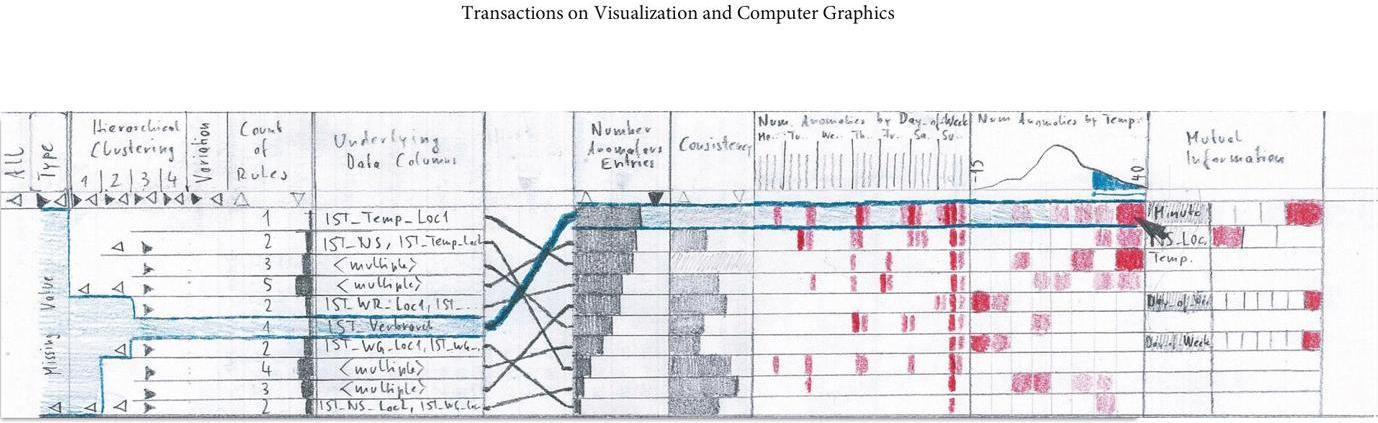 Transactions on Visualization and Computer Graphics
All
Type
Hierarchical
Clustering
1 | 2 | 3 | 4
Variation
Count
of
Rules
Underlying
Data Columns
Number
Anomalous
Entries
Consistency
Num. Anomalies by Day-of-Week
Mo.. Tu.. We.. Th.. Fr.. Sa.. Su..
Num Anomalies by Temp.
-15
40
Mutual
Information
Missing Value
1 IST_Temp_Loc1
2 IST_NS, IST_Temp_Loc1
3 <multiple>
5 <multiple>
2 IST_WR_Loc1, IST_...
1 IST_Verbrauch
2 IST_WG_Loc1, IST_WG_..
4 <multiple>
3 <multiple>
2 IST_NS_Loc2, IST_WG_Loc
Minute
NS_Loc.
Temp.
Day_of_Week